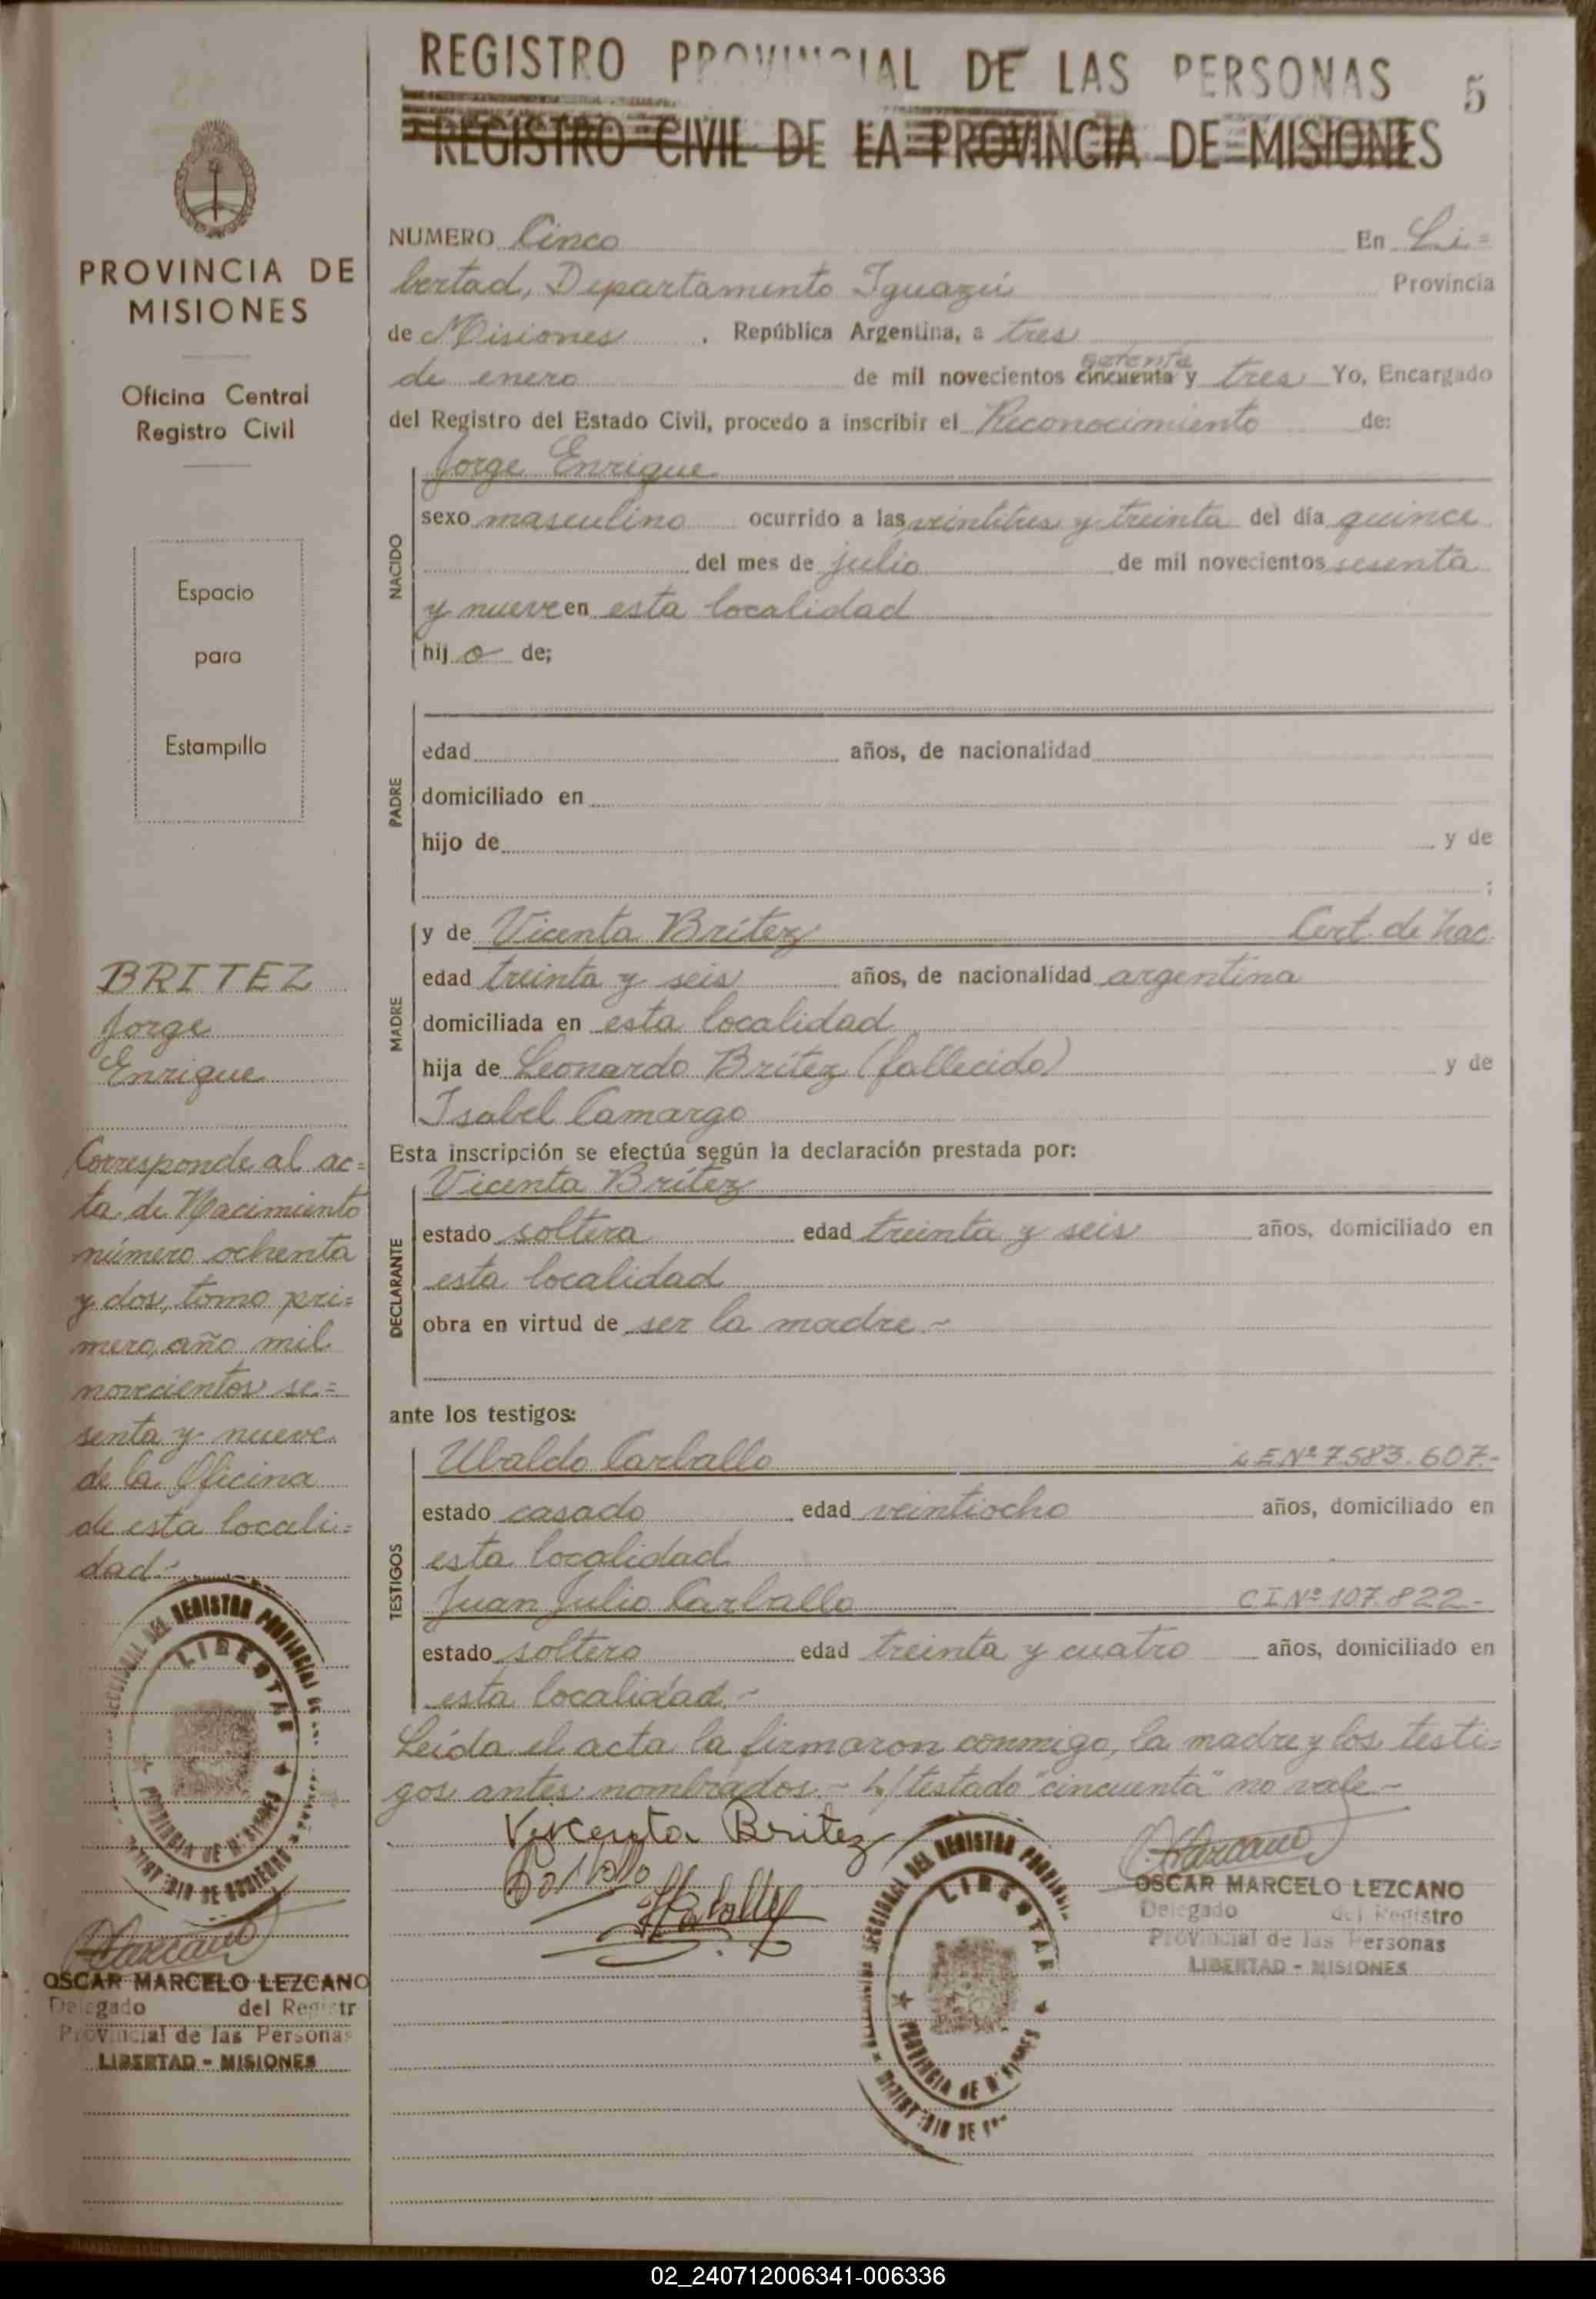 REGISTRO PROVINCIAL DE LAS PERSONAS
5
REGISTRO CIVIL DE LA PROVINCIA DE MISIONES
PROVINCIA DE
MISIONES
Oficina Central
Registro Civil
Espacio
para
Estampilla
BRITEZ
Jorge
Enrique
Corresponde al ac=
ta de Nacimiento
número ochenta
y dos, tomo pri=
mero, año mil
novecientos se=
senta y nueve
de la Oficina
de esta locali=
dad.-
LIBERTAD
OSCAR MARCELO LEZCANO
Delegado del Registr
Provincial de las Personas
LIBERTAD - MISIONES
NUMERO Cinco En Li=
bertad, Departamento Iguazú Provincia
de Misiones . República Argentina, a tres
setenta
de enero de mil novecientos cincuenta y tres Yo, Encargado
del Registro del Estado Civil, procedo a inscribir el Reconocimiento de:
NACIDO
Jorge Enrique
sexo masculino ocurrido a las veintitres y treinta del día quince
del mes de julio de mil novecientos sesenta
y nueve en esta localidad
hij o de;
PADRE
edad años, de nacionalidad
domiciliado en
hijo de y de
;
MADRE
y de Vicenta Brítez Cert. de Nac.
edad treinta y seis años, de nacionalidad argentina
domiciliada en esta localidad
hija de Leonardo Brítez (fallecido) y de
Isabel Camargo
Esta inscripción se efectúa según la declaración prestada por:
DECLARANTE
Vicenta Brítez
estado soltera edad treinta y seis años, domiciliado en
esta localidad
obra en virtud de ser la madre.-
ante los testigos:
TESTIGOS
Ubaldo Carballo L E Nº 7583.607-
estado casado edad veintiocho años, domiciliado en
esta localidad
Juan Julio Carballo C I Nº 107.822-
estado soltero edad treinta y cuatro años, domiciliado en
esta localidad.-
Leída el acta la firmaron conmigo, la madre y los testi=
gos antes nombrados.- L/testado "cincuenta" no vale-
Viscenta Britez
LIBERTAD
OSCAR MARCELO LEZCANO
Delegado del Registro
Provincial de las Personas
LIBERTAD - MISIONES
02_240712006341-006336